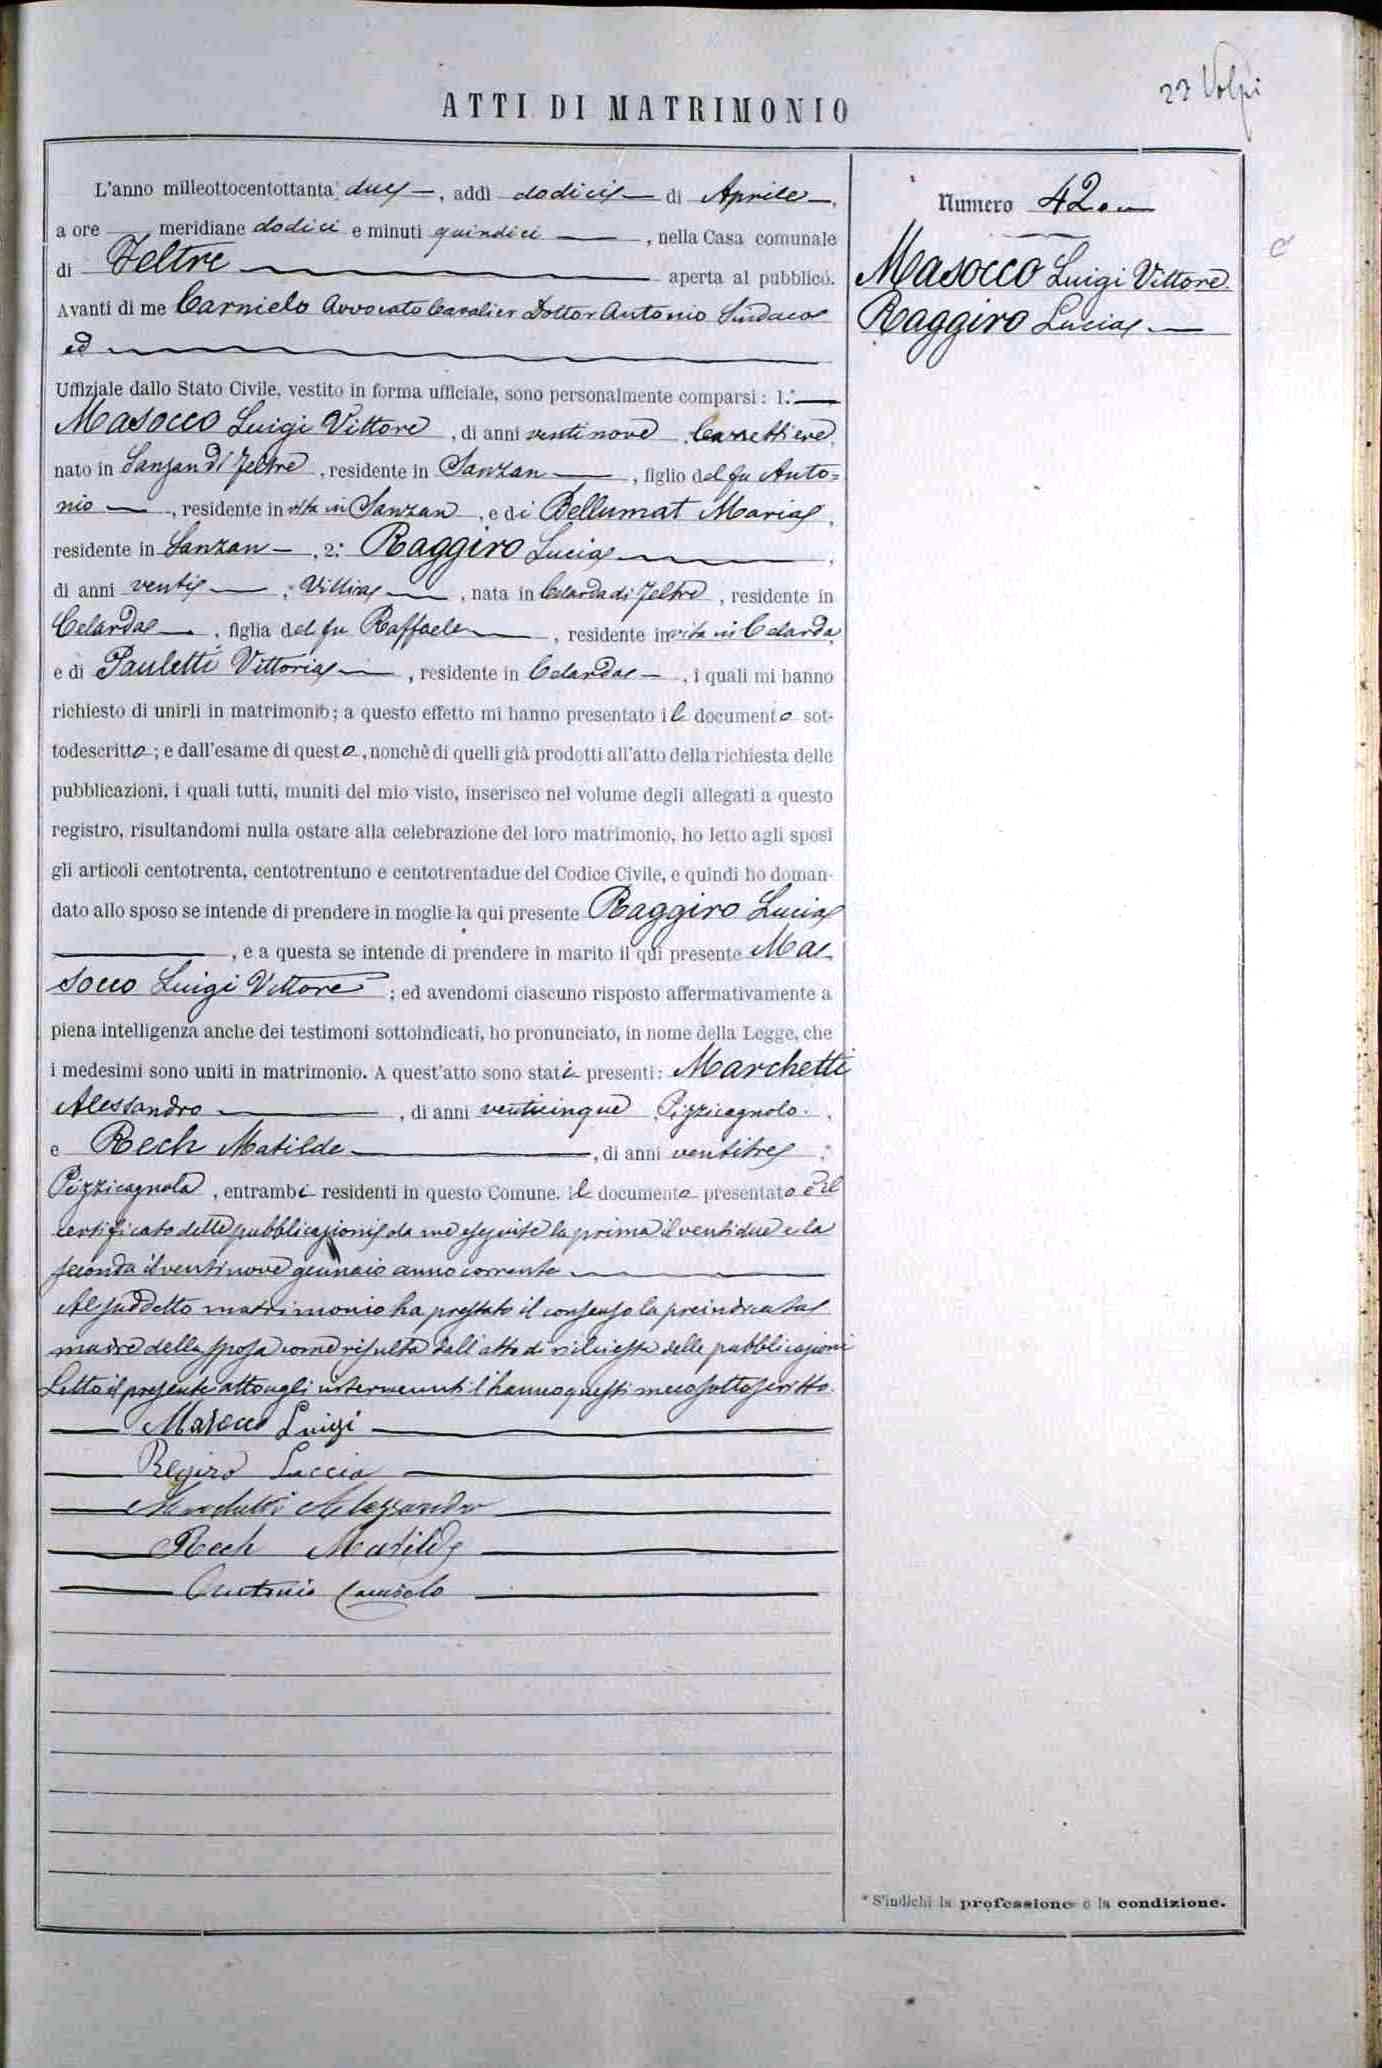 22 Volpi
ATTI DI MATRIMONIO
L'anno milleottocentottanta due, addì dodici di Aprile,
a ore meridiane dodici e minuti quindici, nella Casa comunale
di Feltre aperta al pubblico.
Avanti di me Carnielo Avvocato Cavalier Dottor Antonio Sindaco
ed
Uffiziale dallo Stato Civile, vestito in forma ufficiale, sono personalmente comparsi: 1.°
Masocco Luigi Vittore, di anni ventinove, Carrettiere,
nato in Sanzan di Feltre, residente in Sanzan, figlio del fu Anto=
nio, residente in vita in Sanzan, e di Bellumat Maria,
residente in Sanzan, 2.° Raggiro Lucia,
di anni venti, Villica, nata in Celarda di Feltre, residente in
Celarda, figlia del fu Raffaele, residente in vita in Celarda,
e di Pauletti Vittoria, residente in Celarda, i quali mi hanno
richiesto di unirli in matrimonio; a questo effetto mi hanno presentato il documento sot-
todescritto; e dall'esame di questo, nonchè di quelli già prodotti all'atto della richiesta delle
pubblicazioni, i quali tutti, muniti del mio visto, inserisco nel volume degli allegati a questo
registro, risultandomi nulla ostare alla celebrazione del loro matrimonio, ho letto agli sposi
gli articoli centotrenta, centotrentuno e centotrentadue del Codice Civile, e quindi ho doman-
dato allo sposo se intende di prendere in moglie la qui presente Raggiro Lucia
, e a questa se intende di prendere in marito il qui presente Ma-
socco Luigi Vittore; ed avendomi ciascuno risposto affermativamente a
piena intelligenza anche dei testimoni sottoindicati, ho pronunciato, in nome della Legge, che
i medesimi sono uniti in matrimonio. A quest'atto sono stati presenti: Marchetti
Alessandro, di anni venticinque, Pizzicagnolo,
e Rech Matilde, di anni ventitre,
Pizzicagnola, entrambi residenti in questo Comune. Il documento presentato è il
certificato delle pubblicazioni da me eseguite la prima il ventidue e la
seconda il ventinove gennaio anno corrente
Al suddetto matrimonio ha prestato il consenso la preindicata
madre della sposa come risulta dall'atto di richiesta delle pubblicazioni
Letto il presente atto agli intervenuti l'hanno questi meco sottoscritto.
Masocco Luigi
Regiro Luccia
Marchetti Alessandro
Rech Matilde
Antonio Carnielo
Numero 42.
Masocco Luigi Vittore
Raggiro Lucia
* S'indichi la professione o la condizione.